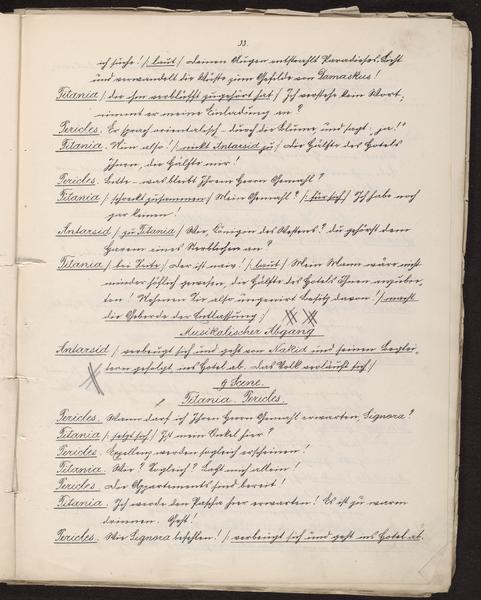 33.
ich suche! /: laut :/ deinen Augen entstrahlt Paradieses-Licht
und verwandelt die Wüste zum Gefilde von Damaskus!
Titania /: der ihm verblüfft zugehört hat :/ Ich verstehe kein Wort;
nimmt er meine Einladung an?
Pericles. Er sprach orientalisch – durch die Blume, und sagt „ja!“
Titania. Nun also! /: winkt Antarsid zu :/ die Hälfte des Hotels
Ihnen, die Hälfte mir!
Pericles. Bitte – was bleibt Ihrem Herrn Gemahl?
Titania /: schreckt zusammen :/ Mein Gemahl? /: für sich :/ Ich habe noch
gar keinen!
Antarsid /: zu Titania :/ Wie, Königin des Westens? du gehörst dem
Harem eines Sterblichen an?
Titania /: bei Seite :/ der ist naiv! /: laut :/ Mein Mann wäre nicht
minder höflich gewesen, die Hälfte des Hotels Ihnen anzubie-
ten! Nehmen Sie also ungenirt Besitz davon! /: macht
die Geberde der Entlassung :/
Musikalischer Abgang
Antarsid /: verbeugt sich und geht von Nakid und seinen Beglei-
tern gefolgt ins Hotel ab. das Volk verläuft sich :/
9 Scene.
Titania. Pericles.
Pericles. Wann darf ich Ihren Herrn Gemahl erwarten, Signora?
Titania /: setzt sich :/ Ist mein Onkel hier?
Pericles. Excellenz werden sogleich erscheinen!
Titania. Wie? Sogleich? Laßt mich allein!
Pericles. die Appartements sind bereit!
Titania. Ich werde den Pascha hier erwarten! Es ist zu warm
drinnen. Geht!
Pericles. Wie Signora befehlen! /: verbeugt sich und geht ins Hotel ab.